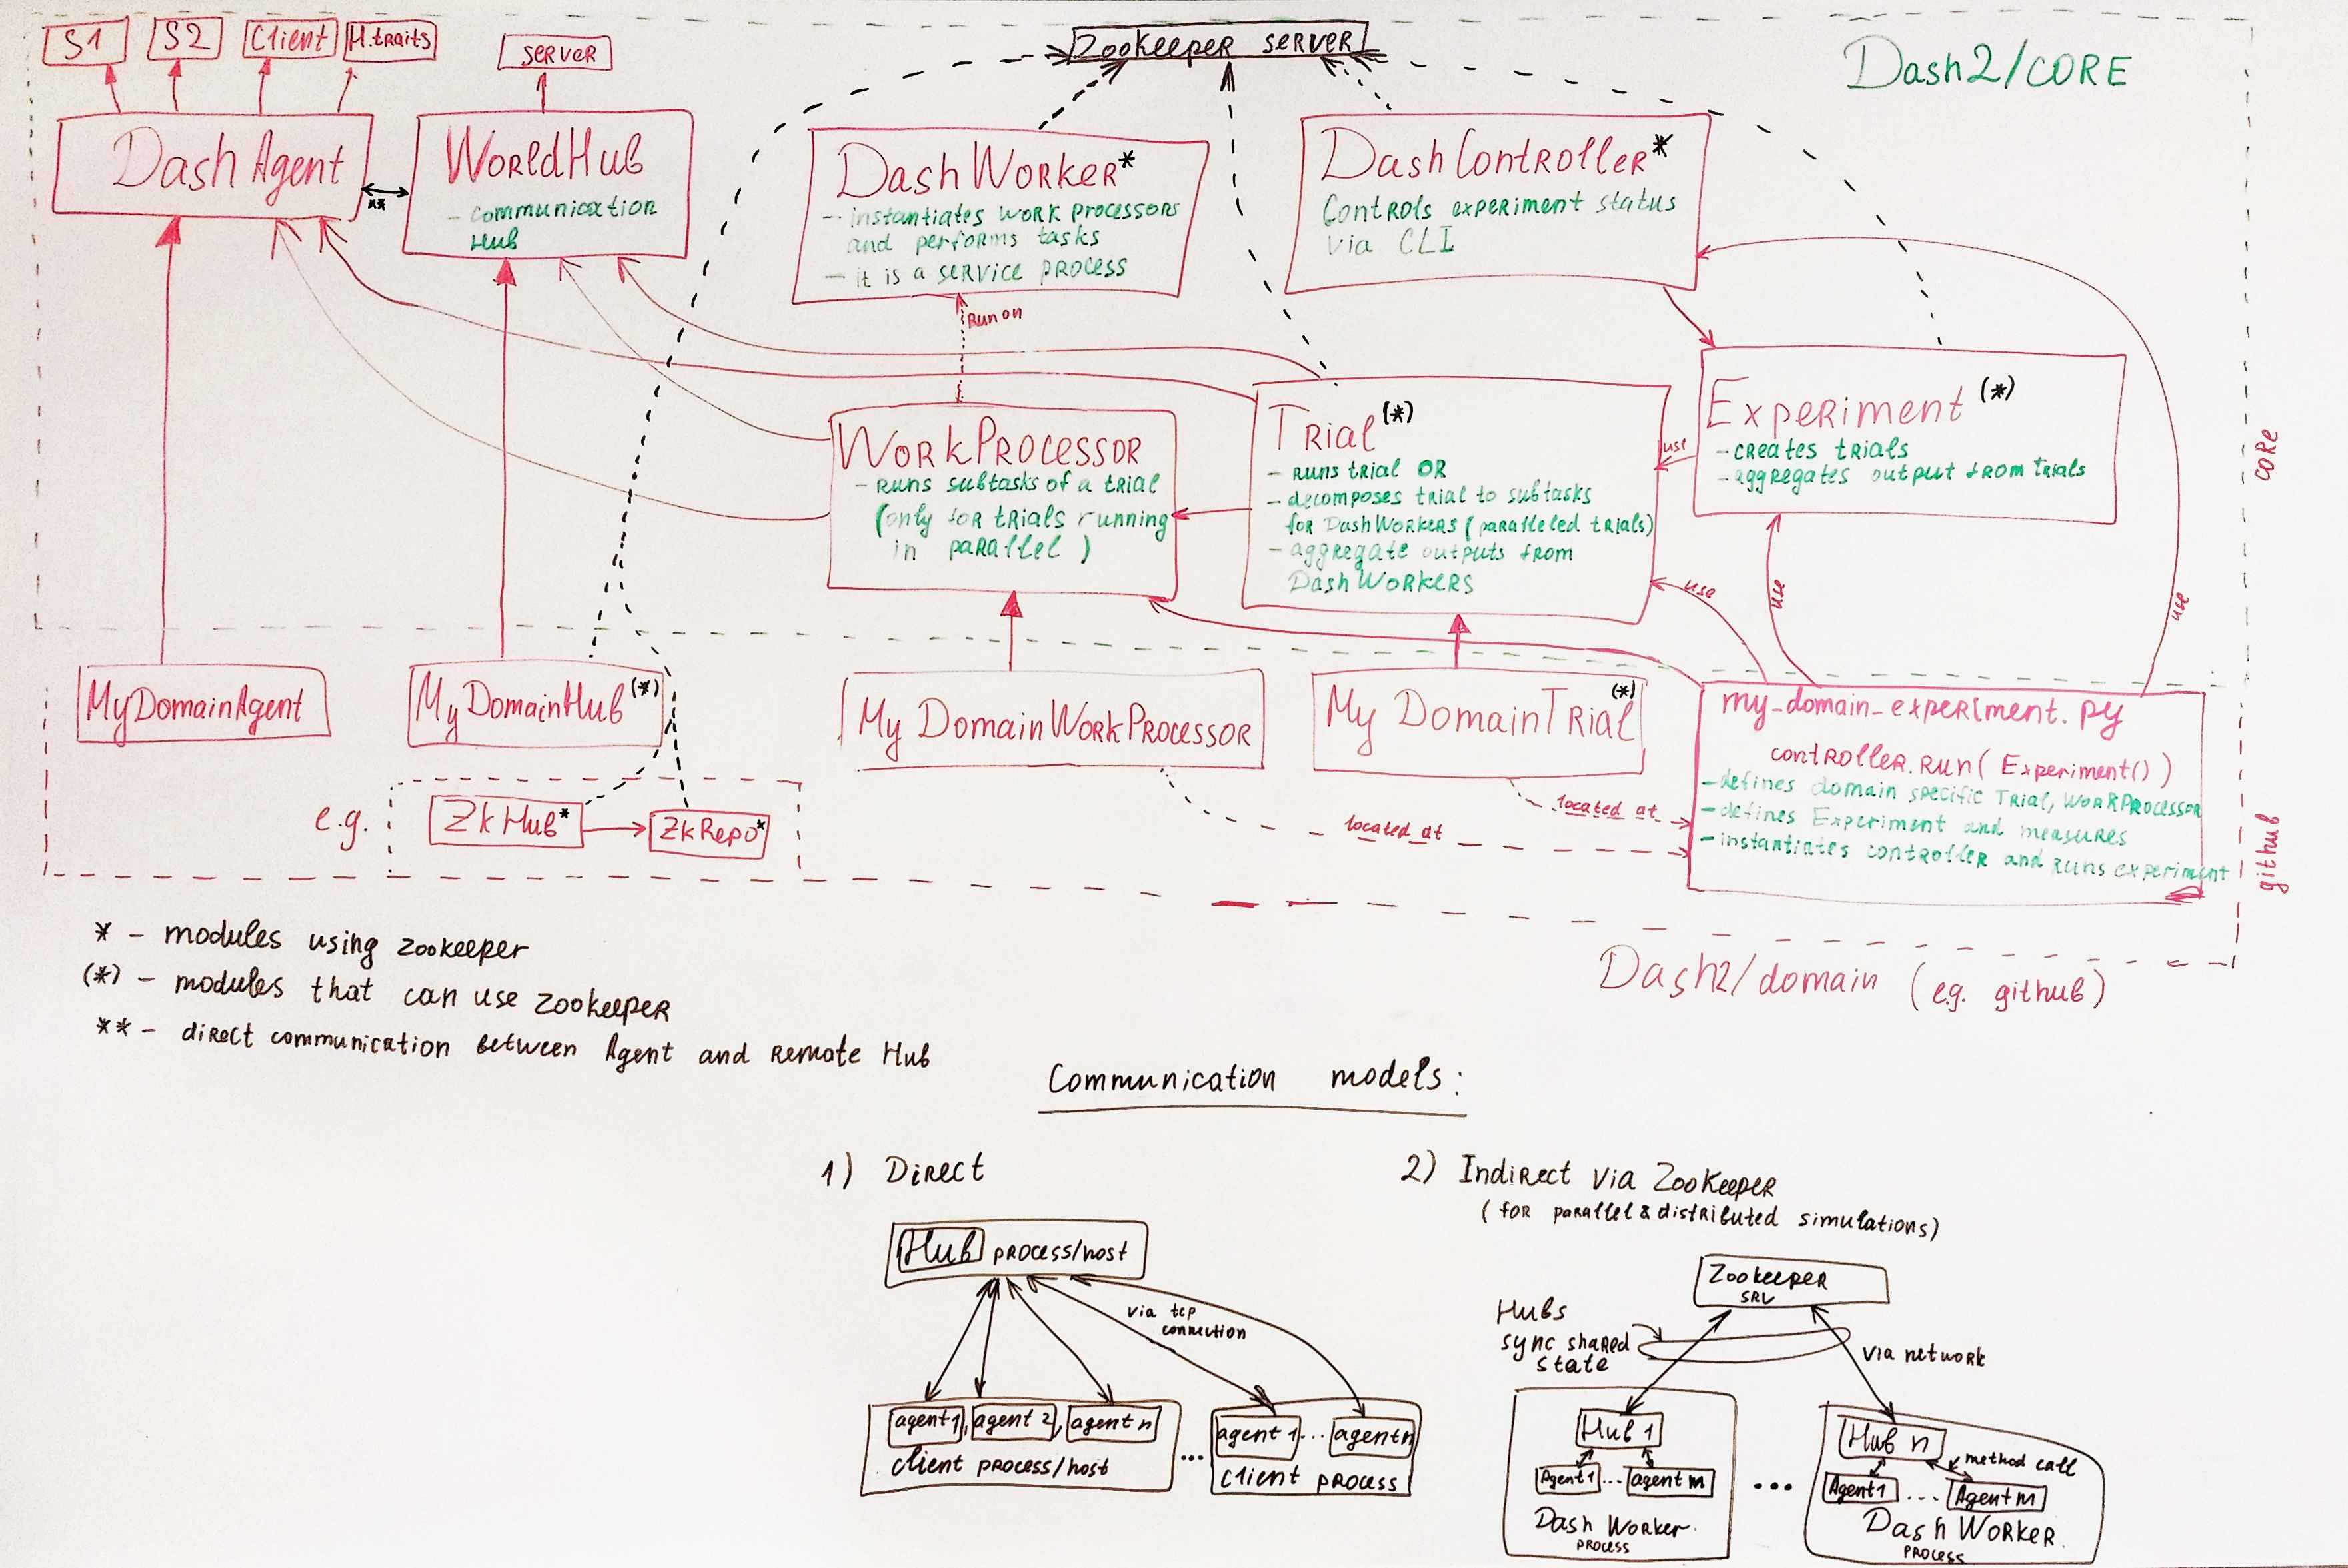 S1
S2
Client
H.traits
server
Zookeeper server
Dash2/CORE
DashAgent
**
WorldHub
- communication
Hub
DashWorker*
- instantiates work processors
and performs tasks
- it is a service process
DashController*
Controls experiment status
via CLI
Run on
WorkProcessor
- runs subtasks of a trial
(only for trials running
in parallel)
Trial(*)
- runs trial OR
- decomposes trial to subtasks
for DashWorkers (paralleled trials)
- aggregate outputs from
DashWorkers
use
Experiment (*)
- creates trials
- aggregates output from trials
core
use
use
use
MyDomainAgent
MyDomainHub(*)
My DomainWorkProcessor
My DomainTrial(*)
my_domain_experiment.py
controller.run( Experiment() )
- defines domain specific Trial, WorkProcessor
- defines Experiment and measures
- instantiates controller and runs experiment
github
e.g.
ZkHub*
ZkRepo*
located at
located at
Dash2/domain (e.g. github)
* - modules using zookeeper
(*) - modules that can use zookeeper
** - direct communication between Agent and remote Hub
Communication models:
1) Direct
Hub process/host
via tcp
connection
agent1, agent 2, agent n
client process/host
...
agent 1 ... agentn
client process
2) Indirect via Zookeeper
(for parallel & distributed simulations)
Zookeeper
SRV
Hubs
sync shared
state
via network
Hub 1
Agent1 ... agent m
Dash Worker.
process
...
Hub n
method call
Agent1 .... Agent m
Dash Worker.
process